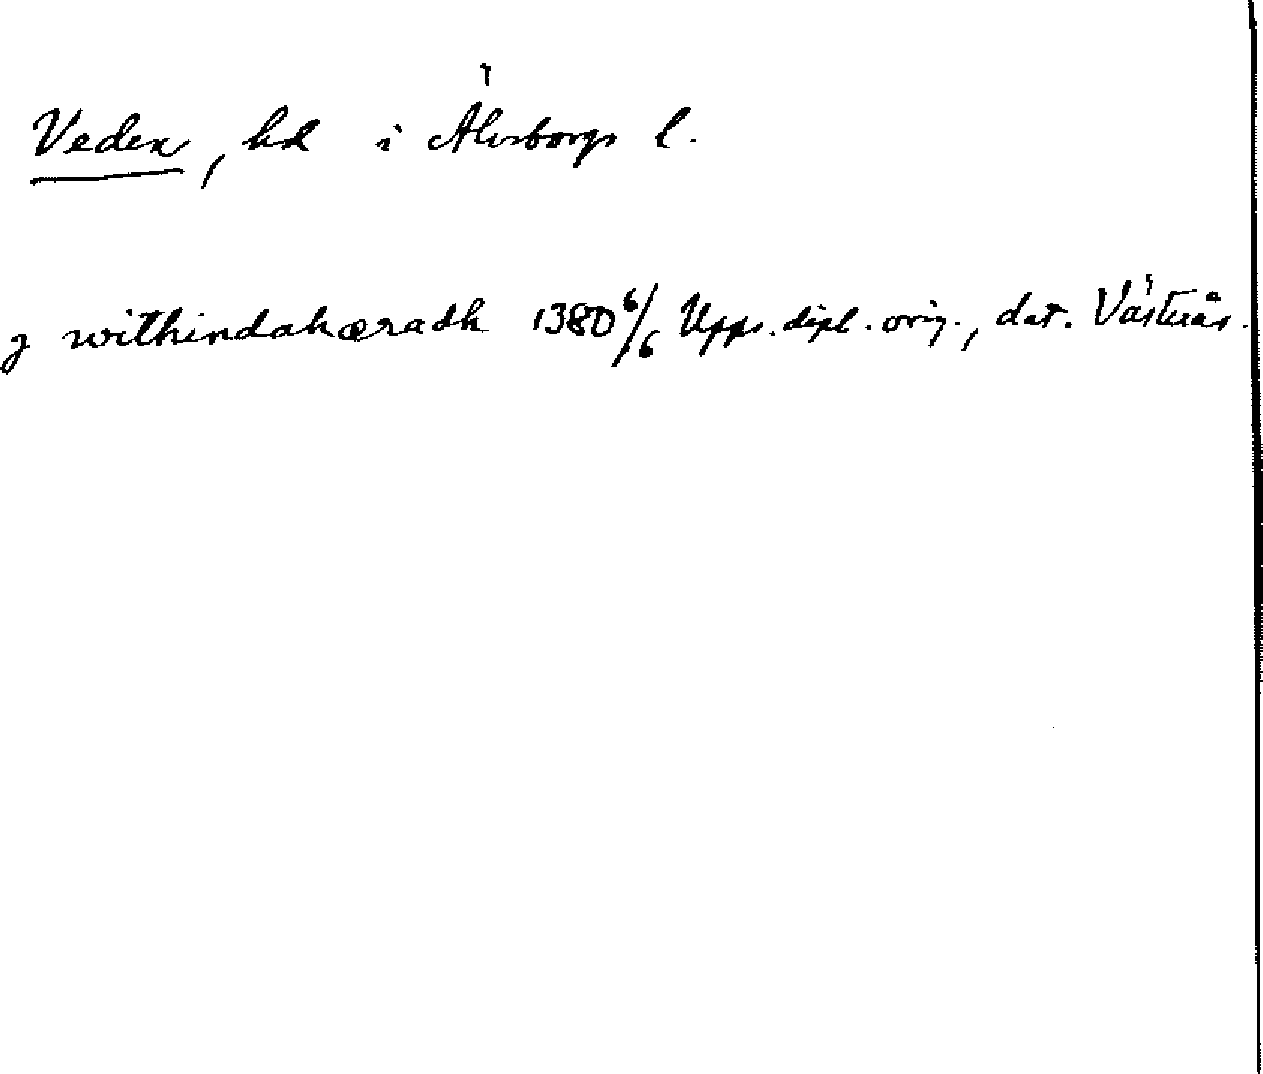 Veden, hd i Älvsborgs l.
J withindahæradh 1380 6/6 Upps. dipl. orig., dat. Västerås.